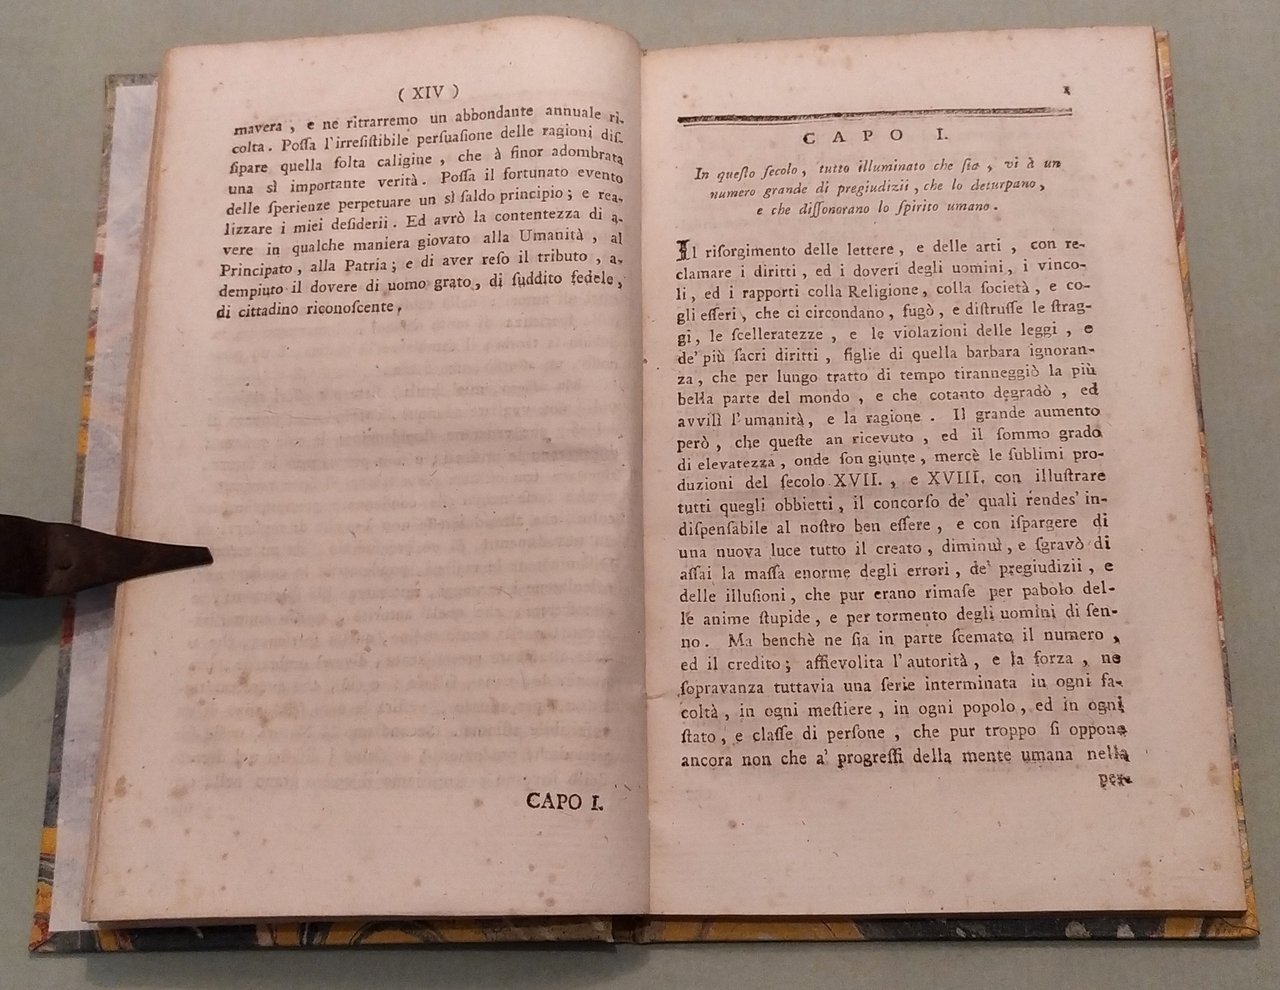 ( XIV )
mavera , e ne ritrarremo un abbondante annuale ri-
colta . Poſſa l'irreſiſtibile perſuaſione delle ragioni diſ-
ſipare quella folta caligine , che à finor adombrata
una sì importante verità . Poſſa il fortunato evento
delle ſperienze perpetuare un sì ſaldo principio ; e rea-
lizzare i miei deſiderii . Ed avrò la contentezza di a-
vere in qualche maniera giovato alla Umanità , al
Principato , alla Patria ; e di aver reſo il tributo , a-
dempiuto il dovere di uomo grato , di ſuddito fedele ,
di cittadino riconoſcente .
CAPO I.
1
CAPO I.
In queſto ſecolo , tutto illuminato che ſia , vi à un
numero grande di pregiudizii , che lo deturpano ,
e che diſſonorano lo ſpirito umano .
Il riſorgimento delle lettere , e delle arti , con re-
clamare i diritti , ed i doveri degli uomini , i vinco-
li , ed i rapporti colla Religione , colla ſocietà , e co-
gli eſſeri , che ci circondano , fugò , e diſtruſſe le ſtrag-
gi , le ſcelleratezze , e le violazioni delle leggi , e
de' più ſacri diritti , figlie di quella barbara ignoran-
za , che per lungo tratto di tempo tiranneggiò la più
bella parte del mondo , e che cotanto degradò , ed
avvilì l'umanità , e la ragione . Il grande aumento
però , che queſte an ricevuto , ed il ſommo grado
di elevatezza , onde ſon giunte , mercè le ſublimi pro-
duzioni del ſecolo XVII. , e XVIII. con illuſtrare
tutti quegli obbietti , il concorſo de' quali rendeſ' in-
diſpenſabile al noſtro ben eſſere , e con iſpargere di
una nuova luce tutto il creato , diminuì , e ſgravò di
aſſai la maſſa enorme degli errori , de' pregiudizii , e
delle illuſioni , che pur erano rimaſe per pabolo del-
le anime ſtupide , e per tormento degli uomini di ſen-
no . Ma benchè ne ſia in parte ſcemato il numero ,
ed il credito ; affievolita l'autorità , e la forza , ne
ſopravanza tuttavia una ſerie interminata in ogni fa-
coltà , in ogni meſtiere , in ogni popolo , ed in ogni
ſtato , e claſſe di perſone , che pur troppo ſi oppone
ancora non che a' progreſſi della mente umana nella
per-